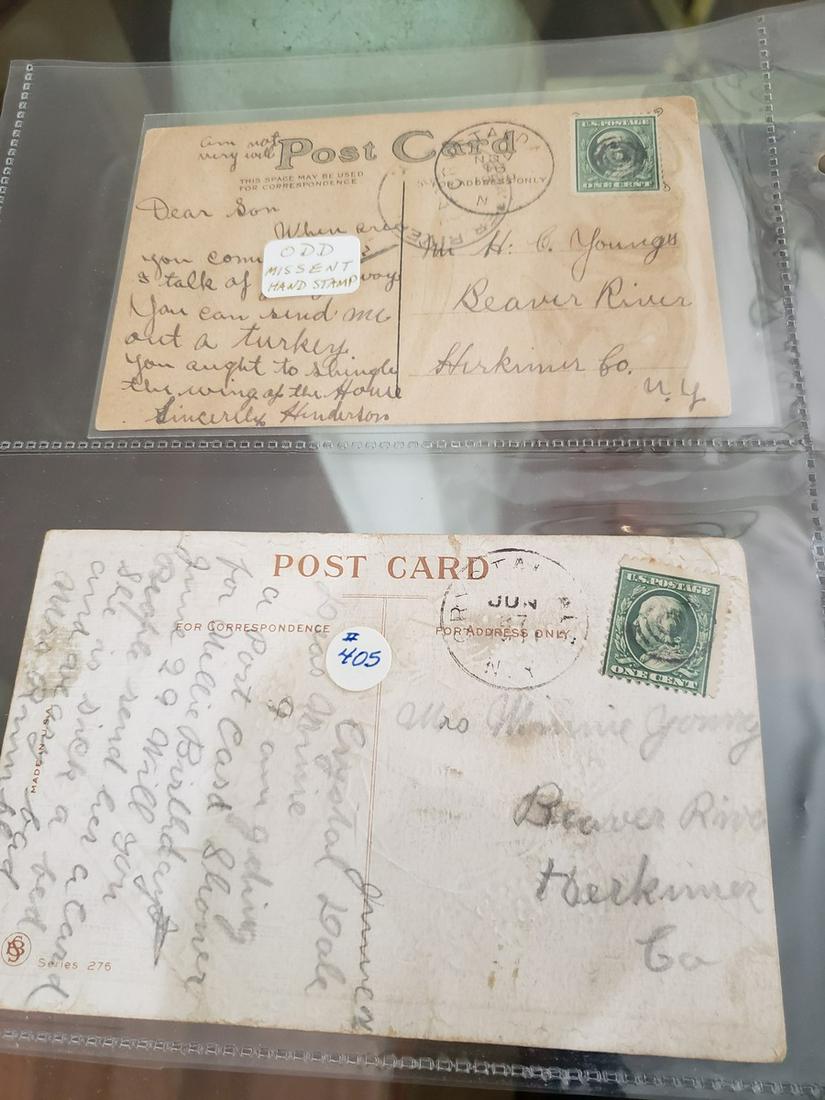 am not
very well
Post Card
THIS SPACE MAY BE USED
FOR CORRESPONDENCE
FOR ADDRESS ONLY
NOV
U.S. POSTAGE
ONE CENT
Dear Son
When are
you com
& talk of
You can send me
out a turkey
You aught to shingle
the wing of the House
Sincerely Henderson
ODD
MISSENT
HAND STAMP
Mr H. C. Young
Beaver River
Herkimer Co.
N.Y
POST CARD
FOR CORRESPONDENCE
FOR ADDRESS ONLY
CRYSTAL
JUN
27
N.Y.
U.S. POSTAGE
ONE CENT
# 405
Mrs Minnie Young
Beaver River
Herkimer
Co
Crystal Dale
Dear Minnie
I am giving
a Post Card Shower
for Nellie Birthday
June 29 Will you
Please send her a Card
She is sick a bed
and
MADE IN U.S.A.
Series 276